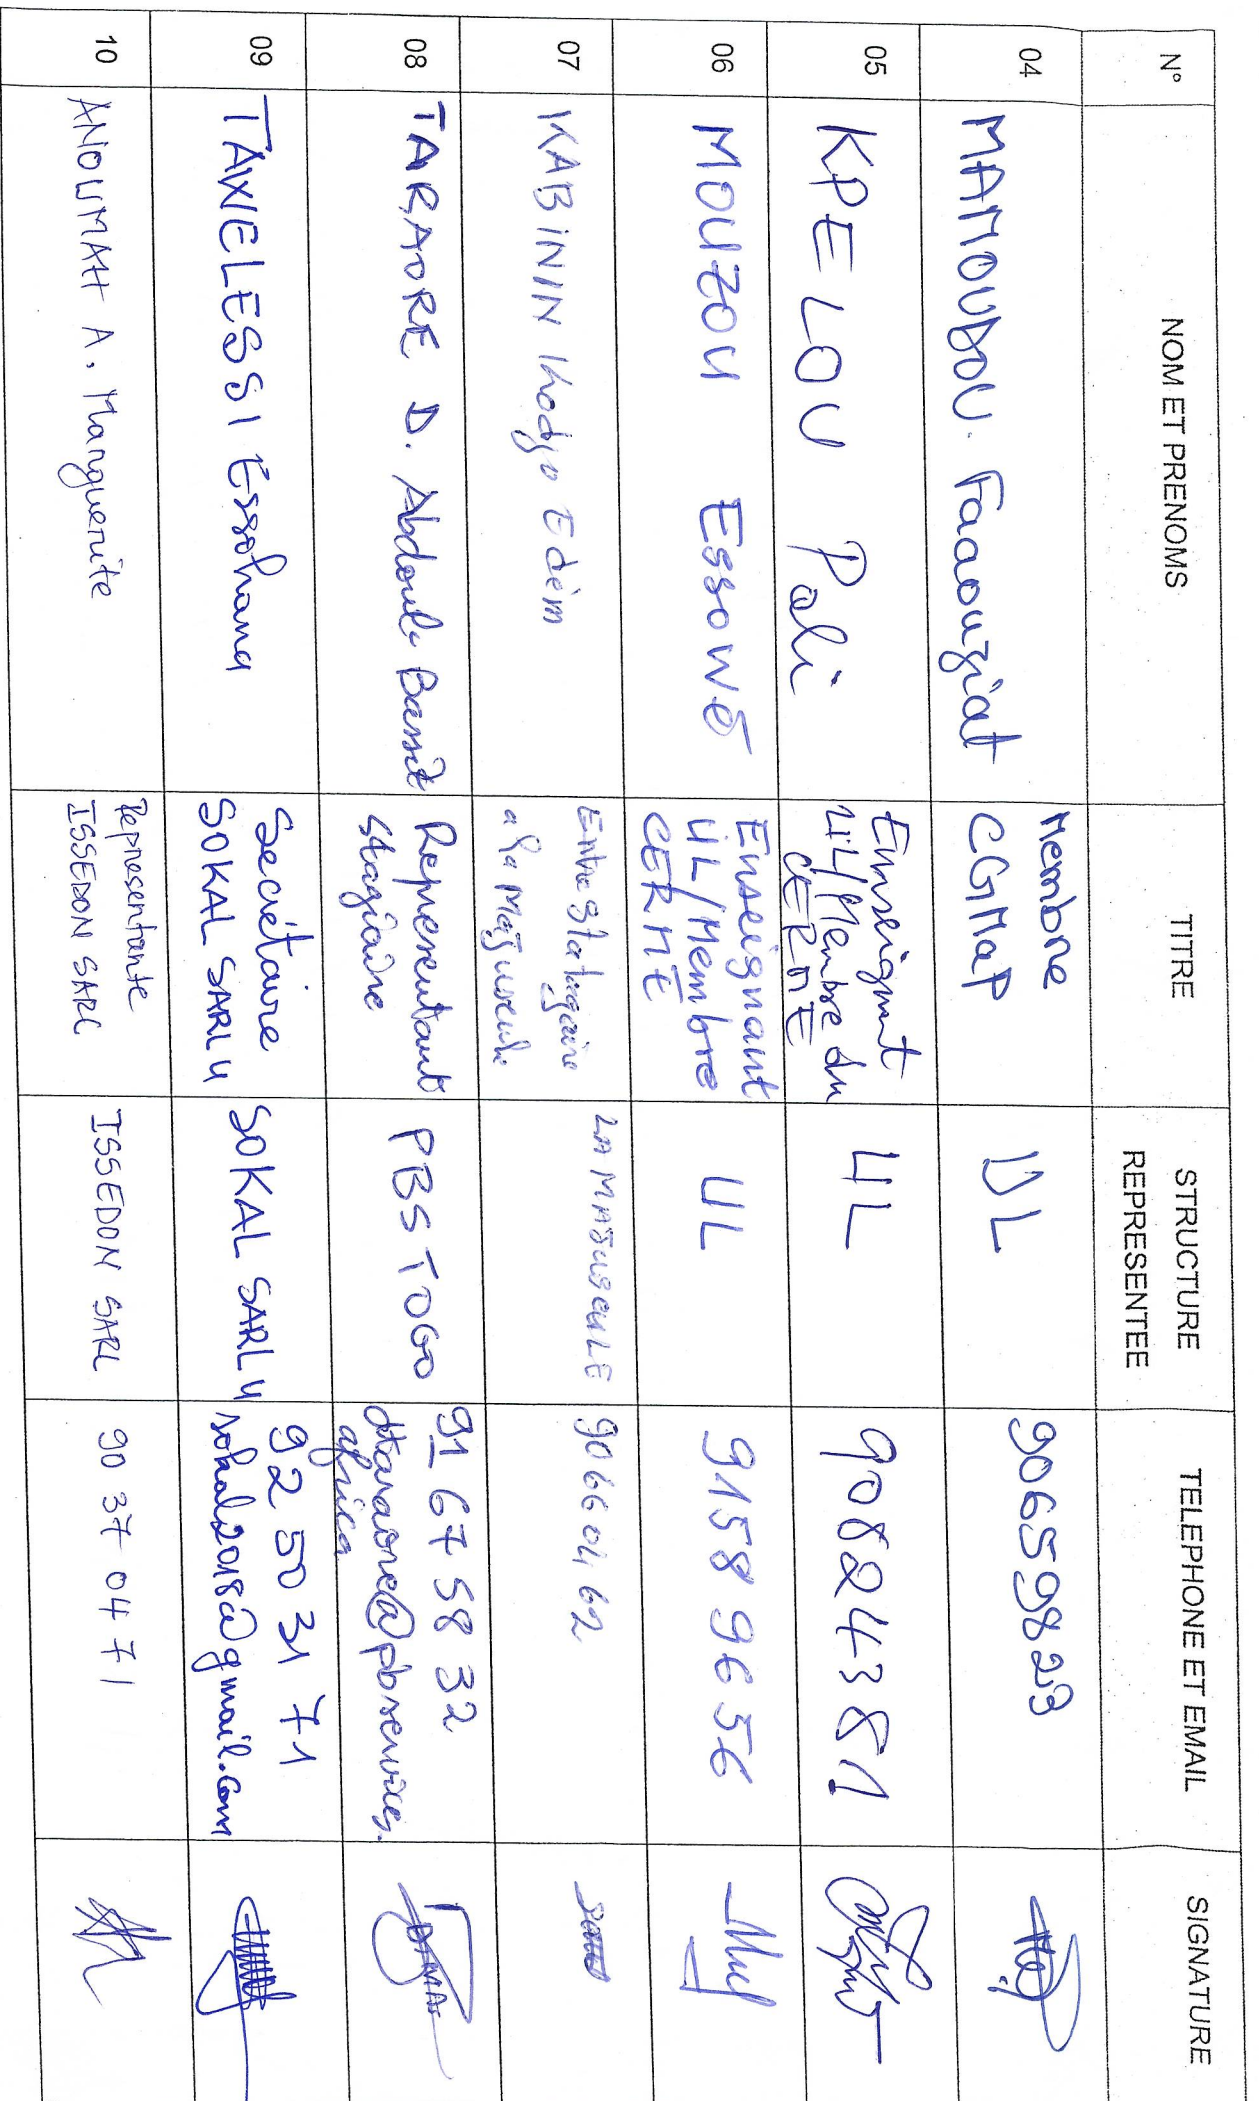 N° NOM ET PRENOMS TITRE STRUCTURE REPRESENTEE TELEPHONE ET EMAIL SIGNATURE
04 MAMOUDOU Faaouziat Membre CGMaP UL 90659823
05 KPELOU Pali Enseignant UL/Membre du CERME UL 90824381
06 MOUZOU Essowè Enseignant UL/Membre CERME UL 9158 9656
07 KABININ Kodjo Edem a la Majuscule LA MAJUSCULE 90660462
08 TARAORE D. Abdoule Bassit Representant Stagiaire PBS TOGO 91 67 58 32
dtaraore@pbservices.
africa
09 TAWELESSI Essohana Secrétaire SOKAL SARLU SOKAL SARLU 92 50 31 71
sokal2018@gmail.com
10 ANOUMAH A. Marguerite Representante ISSEDON SARL ISSEDON SARL 90 37 04 71